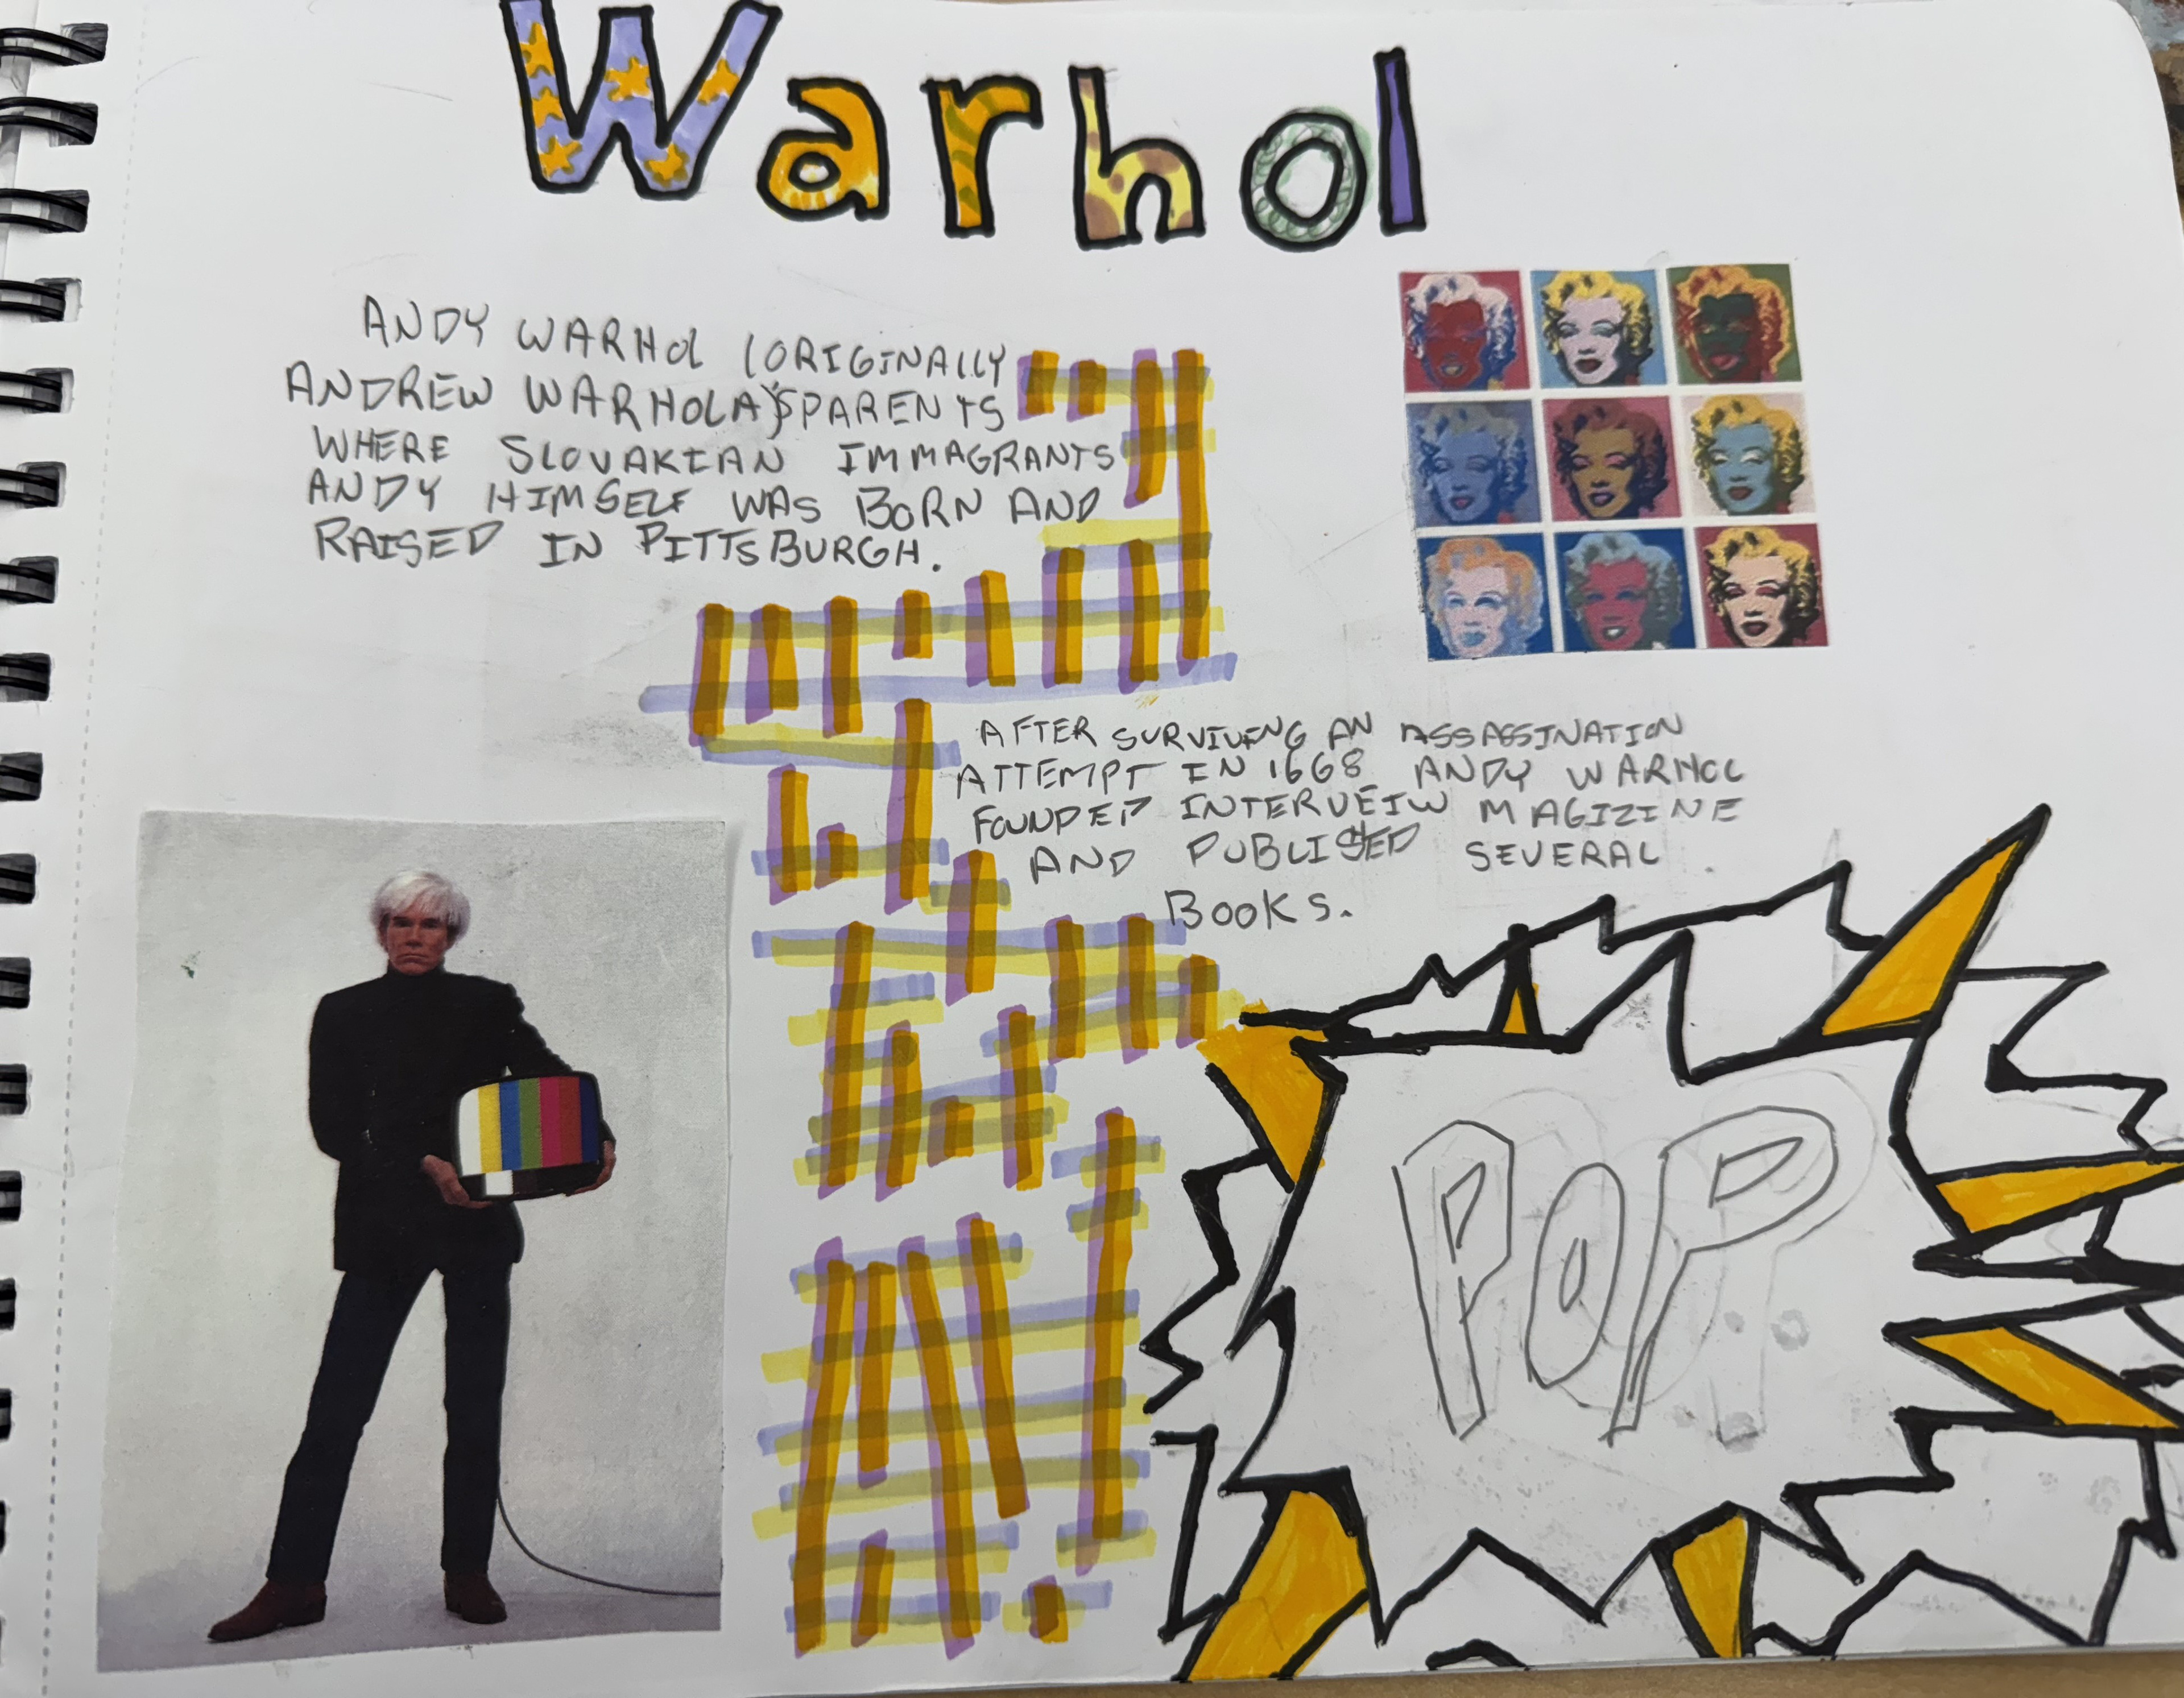 Warhol
ANDY WARHOL (ORIGINALLY
ANDREW WARHOLA)'S PARENTS
WHERE SLOVAKIAN IMMAGRANTS
ANDY HIMSELF WAS BORN AND
RAISED IN PITTSBURGH.
AFTER SURVIVING AN ASSASSINATION
ATTEMPT IN 1668 ANDY WARHOL
FOUNDED INTERVEIW MAGIZINE
AND PUBLISHED SEVERAL
BOOKS.
POP